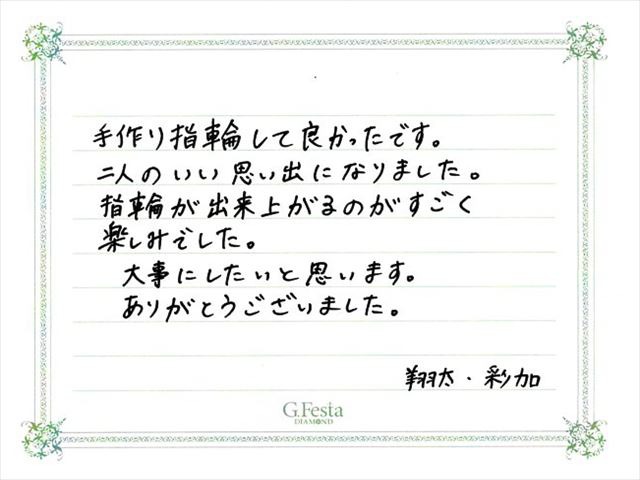 手作り指輪して良かったです。
二人のいい思い出になりました。
指輪が出来上がるのがすごく
楽しみでした。
大事にしたいと思います。
ありがとうございました。
翔太・彩加
G.Festa
DIAMOND